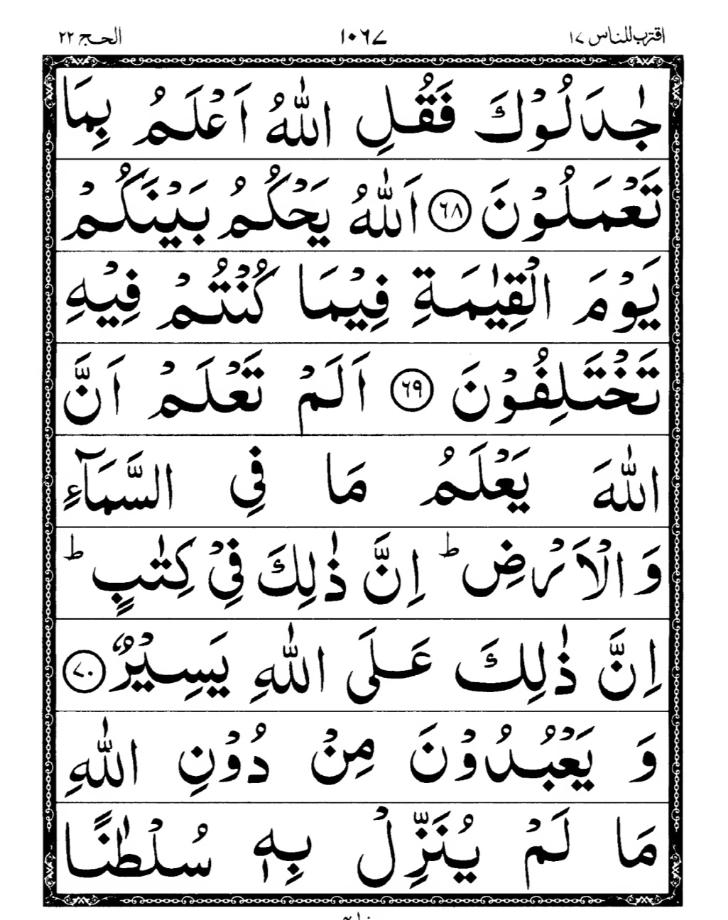 اقترب للناس ١٧ ١٠٦٧ الحج ٢٢
جٰدَلُوْكَ فَقُلِ اللّٰهُ اَعْلَمُ بِمَا
تَعْمَلُوْنَ ﴿٦٨﴾ اَللّٰهُ يَحْكُمُ بَيْنَكُمْ
يَوْمَ الْقِيٰمَةِ فِيْمَا كُنْتُمْ فِيْهِ
تَخْتَلِفُوْنَ ﴿٦٩﴾ اَلَمْ تَعْلَمْ اَنَّ
اللّٰهَ يَعْلَمُ مَا فِي السَّمَآءِ
وَالْاَرْضِ ؕ اِنَّ ذٰلِكَ فِيْ كِتٰبٍ ؕ
اِنَّ ذٰلِكَ عَلَى اللّٰهِ يَسِيْرٌ ﴿٧٠﴾
وَ يَعْبُدُوْنَ مِنْ دُوْنِ اللّٰهِ
مَا لَمْ يُنَزِّلْ بِهٖ سُلْطٰنًا